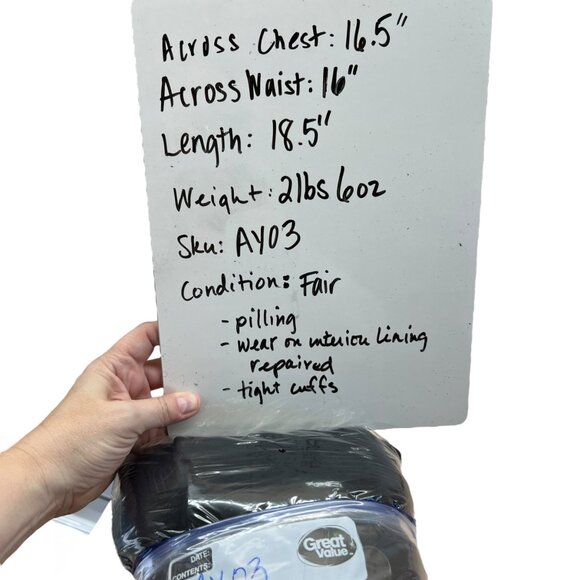 Across Chest: 16.5"
Across Waist: 16"
Length: 18.5"
Weight: 2lbs 6oz
Sku: AY03
Condition: Fair
- pilling
- wear on interior lining
repaired
- tight cuffs
Great
Value
DATE:
CONTENTS:
AY03